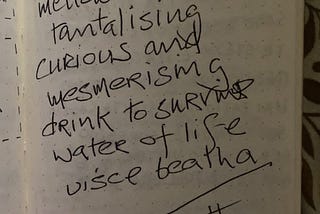 mellow
tantalising
curious and
mesmerising
drink to survive
water of life
uisce beatha